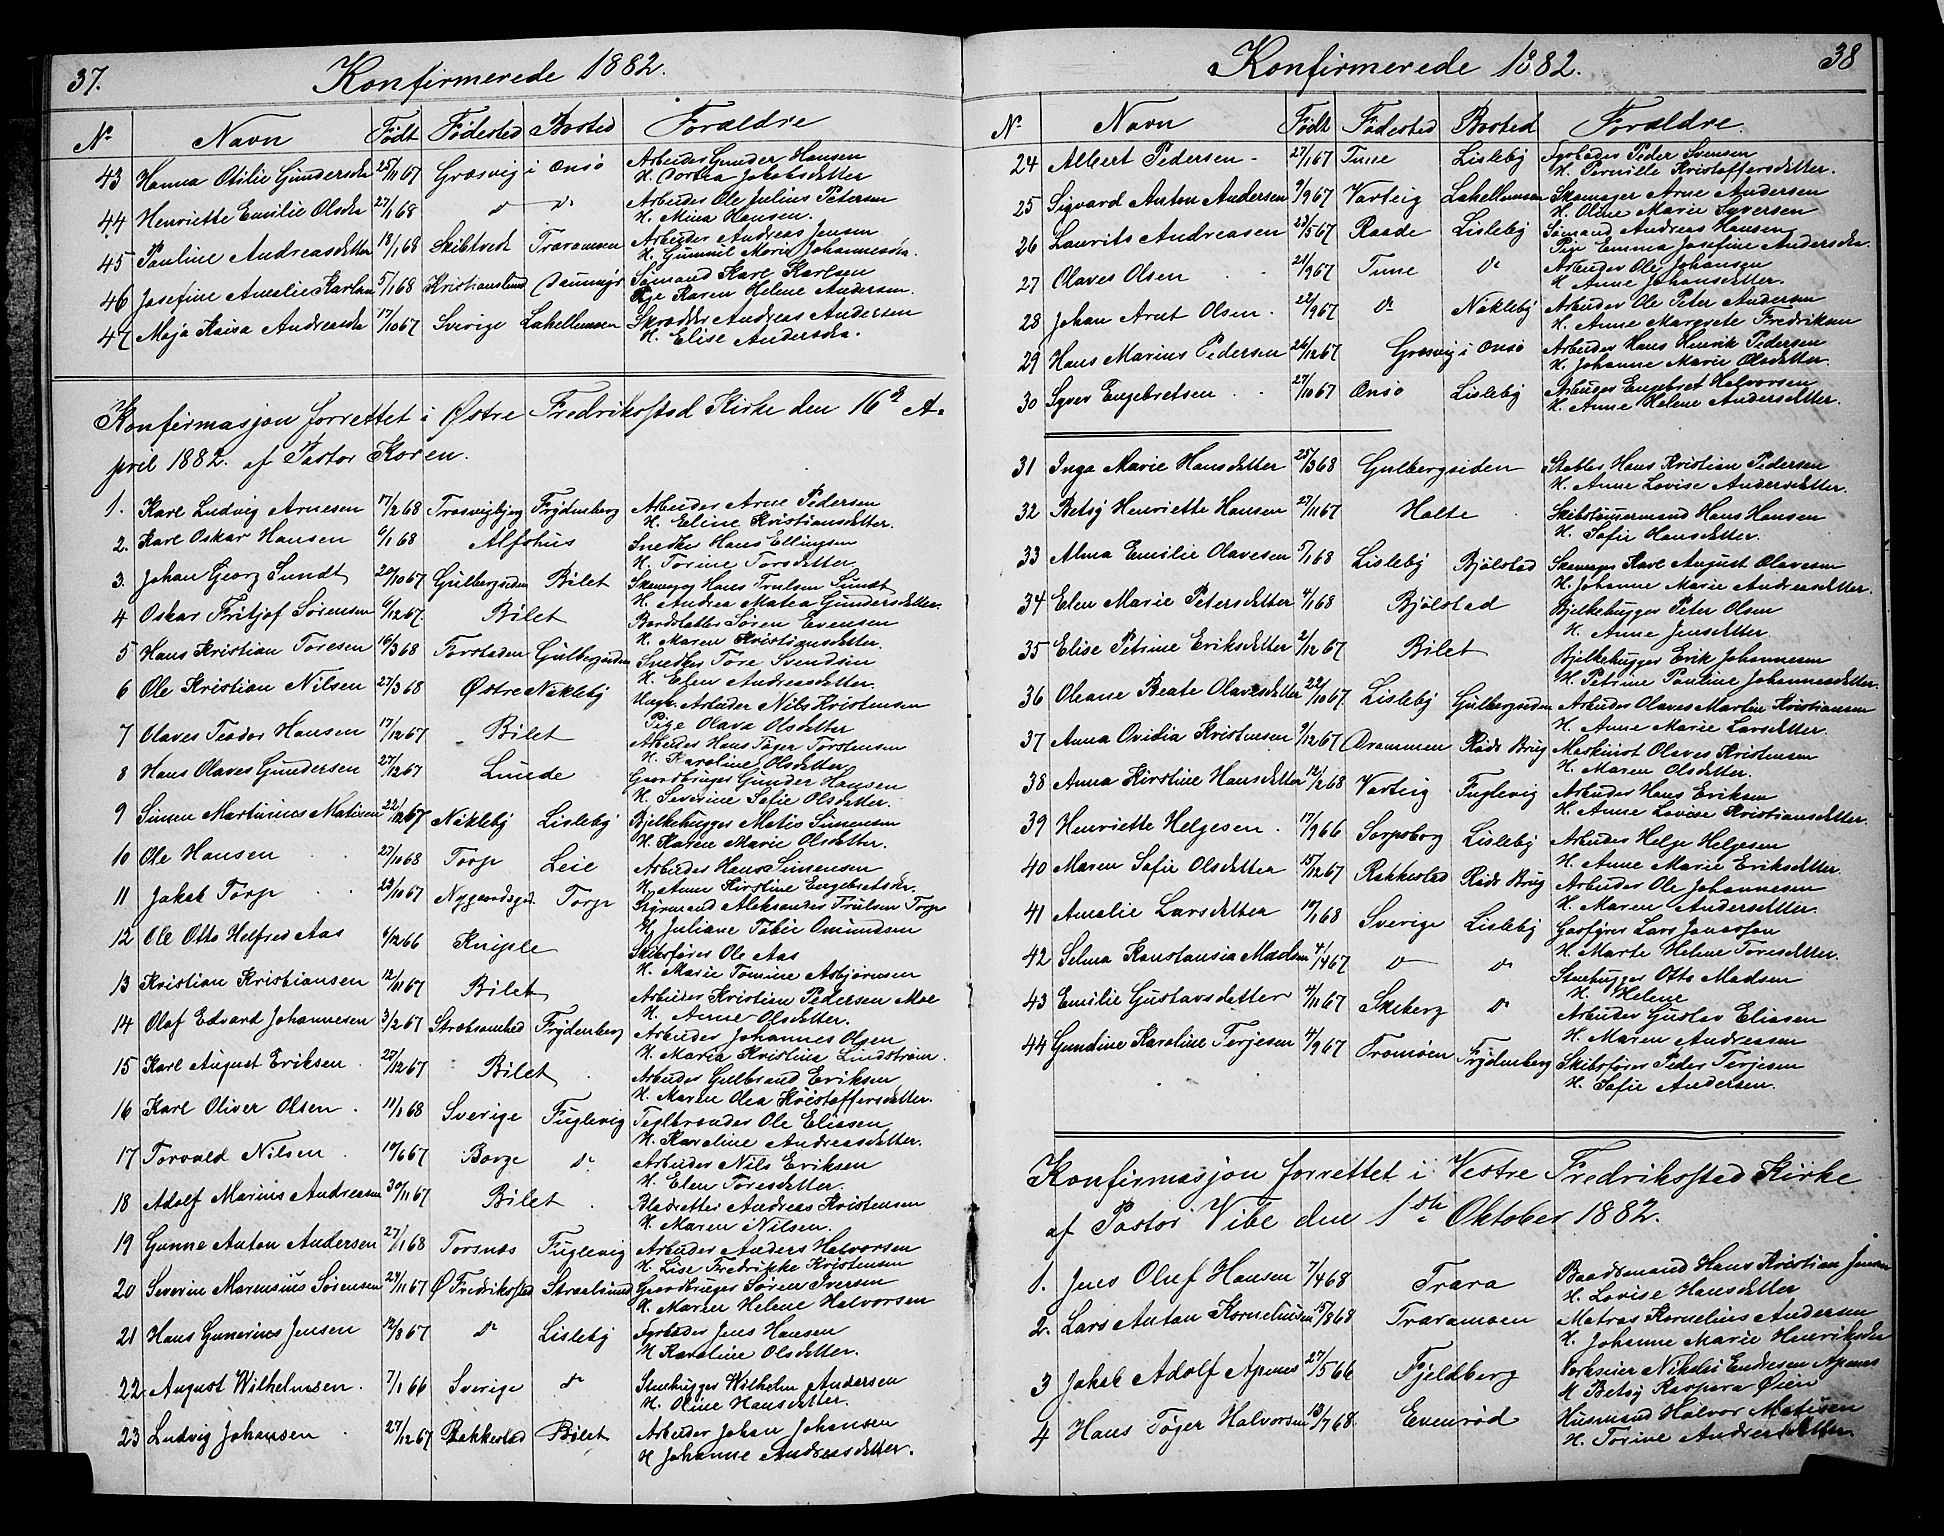 37.
Konfirmerede 1882.
No Navn Født Fødested Bosted Forældre
43 Hanna Otilie Gundersdr 25/11 67 Græsvig i Onsö Arbeider Gunder Hansen
H. Dortea Jakobsdatter
44 Henriette Emilie Olsdtr 27/1 68 do do Arbeider Ole Julius Petersen
H. Mina Hansen.
45 Pauline Andreasdatter 18/1 68 Skibtvedt Traramoen Arbeider Andreas Jensen
H. Gunnil Marie Johannesdtr.
46 Josefine Amalie Karlsen 5/1 68 Kristianslund Sömand Karl Karlsen
Pige Karen Helene Andersen.
47 Maja Kaisa Andreasdtr 17/10 67 Sverige Lahellmoen Skrædder Andreas Andersen
H. Elise Andersdtr.
Konfirmasjon forrettet i Østre Fredriksstad Kirke den 16de A-
pril 1882. af Pastor Koren.
1. Karl Ludvig Arnesen 17/2 68 Trosvigbjerg Frydenberg Arbeider Arne Pedersen
H. Eline Kristiansdatter.
2. Karl Oskar Hansen 6/1 68 Alfshus Snedker Hans Ellingsen
H. Torine Torsdatter
3. Johan Georg Sundt 20/10 67 Gulbergsiden Bilet Skomager Hans Trulsen Sundt
H. Andrea Matea Gundersdatter.
4 Oskar Fritjof Sørensen 6/12 67. Bilet Bordstabler Søren Evensen
H. Maren Kristiansdatter.
5 Hans Kristian Toresen 16/3 68 Torstaden Gulbergsiden Snedker Tore Svendsen
H. Elen Andreasdatter.
6 Ole Kristian Nilsen 27/3 68 Østre Nakleby Ungk. Arbeider Nils Kristensen
Pige Olava Olsdatter
7 Olaves Teodor Hansen 17/12 67 Bilet Arbeider Hans Tøger Torstensen
H. Karoline Olsdatter
8 Hans Olaves Gundersen 27/12 67 Lunde Gaardbruger Gunder Hansen
H. Severine Sofie Olsdatter.
9 Simen Martinius Matisen 22/12 67 Nakleby Lisleby Bjelkehugger Matis Simensen
H. Karen Marie Olsdatter.
10 Ole Hansen 27/10 68 Torp Leie Arbeider Hans Simensen
H. Anne Kirstine Engebretsdtr.
11 Jakob Torp 23/10 67 Nygaardsgd Torp Styrmand Aleksander Trulsen Torp
H. Juliane Tobie Omundsen
12 Ole Otto Helfred Aas 6/12 66 Kniple Skibsfører Ole Aas
H. Marie Tomine Asbjørnsen
13 Kristian Kristiansen 12/11 67 Bilet Arbeider Kristian Pedersen Moe
H. Anne Olsdatter.
14 Olaf Edvard Johannesen 3/2 67 Stræbsomhed Frydenberg Arbeider Johannes Olsen
H. Maria Kristina Lindstrøm.
15 Karl August Eriksen 27/12 67 Bilet Arbeider Gulbrand Eriksen
H. Maren Olea Kristoffersdatter.
16 Karl Oliver Olsen 11/1 68 Sverige Fuglevig Teglbrænder Ole Eliasen
H. Karoline Andreasdatter.
17 Torvald Nilsen 19/6 67 Borge do Arbeider Nils Eriksen
H. Elen Toresdatter.
18 Adolf Marius Andreasen 30/11 67 Bilet Bladsetter Andreas Kristensen
H. Maren Nilsen.
19 Gunne Anton Andersen 27/1 68 Torsnæs Fuglevig Arbeider Anders Halvorsen
H. Lise Fredrikke Kristensen
20 Severin Marensius Sørensen 29/11 67 Ø Fredriksstad Straalsund Gaardbruger Sören Iversen
H. Maren Helene Halvorsen
21 Hans Gunerius Jensen 12/8 67 do Lisleby Fyrbøder Jens Hansen
H Karoline Olsdatter.
22. August Wilhelmsen. 7/1 66 Sverige do Stenhugger Wilhelm Andersen
H. Oline Hansdatter.
23 Ludvig Johansen 27/12 67 Rakkestad Bilet Arbeider Johan Johansen
H Johanne Andreasdatter.
38
Konfirmerede 1882.
No Navn Født Fødested Bosted Forældre.
24 Albert Pedersen 27/1 67 Tune Lisleby Fyrbøder Peder Svensen
H. Pernille Kristoffersdatter.
25 Sigvard Anton Andersen 9/9 67 Varteig Lahellmoen Skomager Arne Andersen
H. Oline Marie Syversen
26 Laurits Andreasen 23/5 67 Raade Lisleby Sømand Andreas Hansen
Pige Emma Josefine Andersdtr.
27 Olaves Olsen 21/9 67 Tune do Arbeider Ole Johansen
H Anne Johansdatter.
28 Johan Arnt Olsen. 22/9 67 do Nakleby Arbeider Ole Peter Andersen
H. Anne Margrete Fredriksen
29 Hans Marius Pedersen 26/12 67 Græsvig i Onsö Arbeider Hans Henrik Pedersen
H. Johanne Marie Olsdatter.
30 Syver Engebretsen 27/10 67 Onsö Lisleby Arbeider Engebret Halvorsen
H. Anne Helene Andersdatter.
31 Inga Marie Hansdatter 25/3 68 Gulbergsiden Stabler Hans Kristian Pedersen
H. Anne Lovise Andersdatter.
32 Betsy Henriette Hansen 27/11 67 Holte Skibstömmermand Hans Hansen
H. Sofie Hansdatter.
33 Alma Emilie Olavesen 5/1 68 Lisleby Bjölstad Skomager Karl August Olavesen
H. Johanne Marie Andreasdatter.
34 Elen Marie Petersdatter 4/1 68 Bjölstad Bjelkehugger Peter Olsen
H. Anne Jensdatter
35 Elise Petrine Eriksdatter 2/12 67 Bilet Bjelkehugger Erik Johannesen
H. Petrine Pauline Johannesdatter.
36 Oleane Beate Olavesdatter 22/10 67. Lisleby Gulbergsiden Arbeider Olaves Martin Kristiansen
H. Anne Marie Larsdatter.
37 Anna Ovidia Kristensen 9/12 67 Drammen Røds Brug Maskinist Olaves Kristensen
H. Maren Olsdatter.
38 Anna Kirstine Hansdatter 12/2 68 Varteig Fuglevig Arbeider Hans Eriksen
H. Anne Lovise Kristiansdatter.
39 Henriette Helgesen. 17/9 66 Sarpsborg Lisleby Arbeider Helge Helgesen
H. Anne Marie Eriksdatter.
40 Maren Sofie Olsdatter 25/12 67 Rakkestad Røds Brug Arbeider Ole Johannesen
H. Maren Andersdatter.
41 Amalie Larsdatter 19/1 68 Sverige Lisleby Gasfyrer Lars Jonasson
H. Marte Helene Toresdatter.
42 Selma Konstansia Madsen 4/4 67 do do Stenhugger Otto Madsen
H. Helene
43 Emilie Gustavsdatter 4/11 67 Skeberg do Arbeider Gustav Eliasen
H. Maren Andreasen
44 Gundine Karoline Terjesen 4/9 67 Tromöen Frydenberg Skibsfører Peder Terjesen
H. Sofie Andersen.
Konfirmasjon forrettet i Vestre Fredriksstad Kirke
af Pastor Vibe den 1ste Oktober 1882.
1. Jens Oluf Hansen 7/4 68 Trara Baadsmand Hans Kristian Jensen
H. Lovise Hansdatter
2. Lars Anton Kornelius 15/8 68 Traramoen Matros Kornelius Andersen
H. Johanne Marie Henriksdtr
3 Jakob Adolf Apenes 27/5 66 Fjeldberg Verkseier Nikolai Endresen Apenes
H Betsy Kaspara Øien
4 Hans Tøger Halvorsen 13/7 68. Evenrød Husmand Halvor Matisen
H. Torine Andreasdatter.